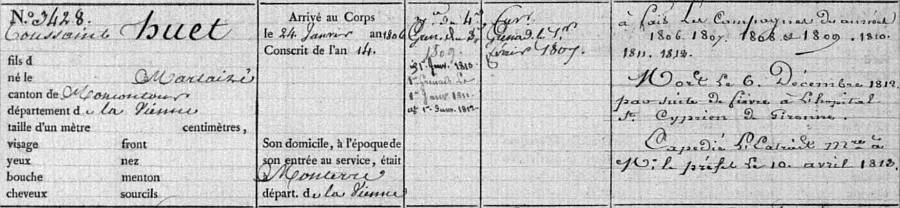 N.º 3428.
Toussaint huet
fils d
né le Marsaizé
canton de Moncontour
département d e la Vienne
taille d'un mètre centimètres,
visage front
yeux nez
bouche menton
cheveux sourcils
Arrivé au Corps
le 24 Janvier an 1806
Conscrit de l'an 14.
Son domicile, à l'époque de
son entrée au service, était
Monterre
départ. d e la Vienne
1809
1er Janv. 1811
Janv. 1812
Fus.
Grenad. le 1er
1807.
à fait les Campagnes des années
1806. 1807. 1808 et 1809. 1810.
1811. 1812.
Mort le 6. Décembre 1812.
par suite de fièvre à l'hopital
St. Cyprien de Gironne.
Expédié l'Extrait mre à
Mr. le préfet le 10. avril 1813.